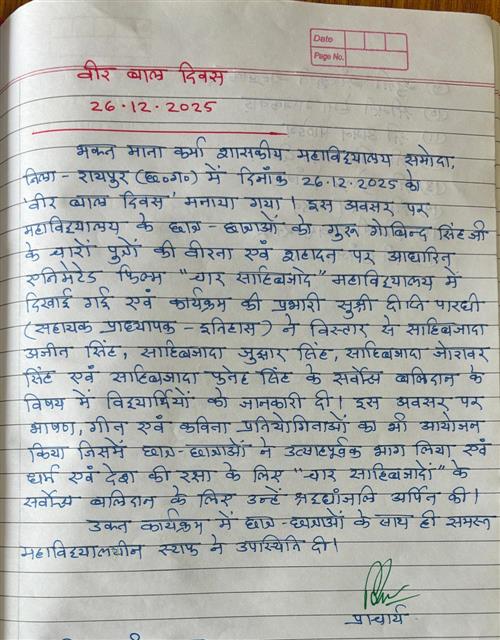 Date
Page No.
वीर बाल दिवस
26.12.2025
भक्त माता कर्मा शासकीय महाविद्यालय समोदा,
जिला - रायपुर (छ०ग०) में दिनाँक 26.12.2025 को
'वीर बाल दिवस' मनाया गया। इस अवसर पर
महाविद्यालय के छात्र - छात्राओं को गुरू गोबिन्द सिंह जी
के चारों पुत्रों की वीरता एवं शहादत पर आधारित
एनिमेटेड फिल्म "चार साहिबजादे" महाविद्यालय में
दिखाई गई एवं कार्यक्रम की प्रभारी सुश्री दीप्ति पारधी
(सहायक प्राध्यापक - इतिहास) ने विस्तार से साहिबजादा
अजीत सिंह, साहिबजादा जुझार सिंह, साहिबजादा जोरावर
सिंह एवं साहिबजादा फतेह सिंह के सर्वोच्च बलिदान के
विषय में विद्यार्थियों को जानकारी दी। इस अवसर पर
भाषण, गीत एवं कविता प्रतियोगिताओं का भी आयोजन
किया जिसमें छात्र - छात्राओं ने उत्साहपूर्वक भाग लिया एवं
धर्म एवं देश की रक्षा के लिए "चार साहिबजादों" के
सर्वोच्च बलिदान के लिए उन्हें श्रद्धांजलि अर्पित की।
उक्त कार्यक्रम में छात्र - छात्राओं के साथ ही समस्त
महाविद्यालयीन स्टाफ ने उपस्थिति दी।
प्राचार्य